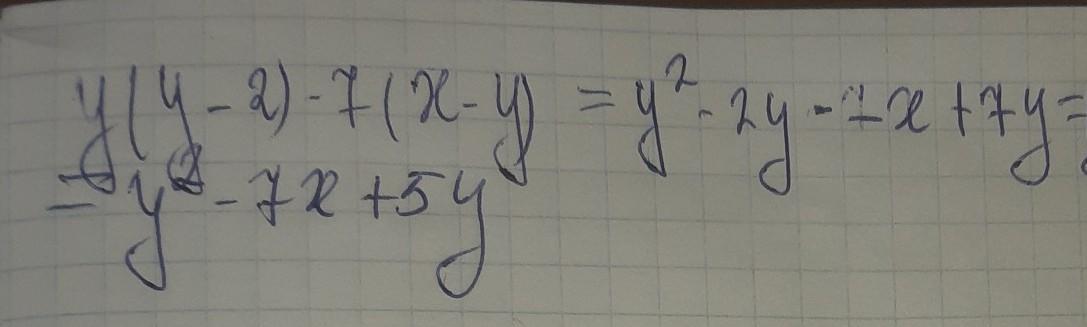 y(y-2)-7(x-y) = y²-2y-7x+7y=
= y²-7x+5y